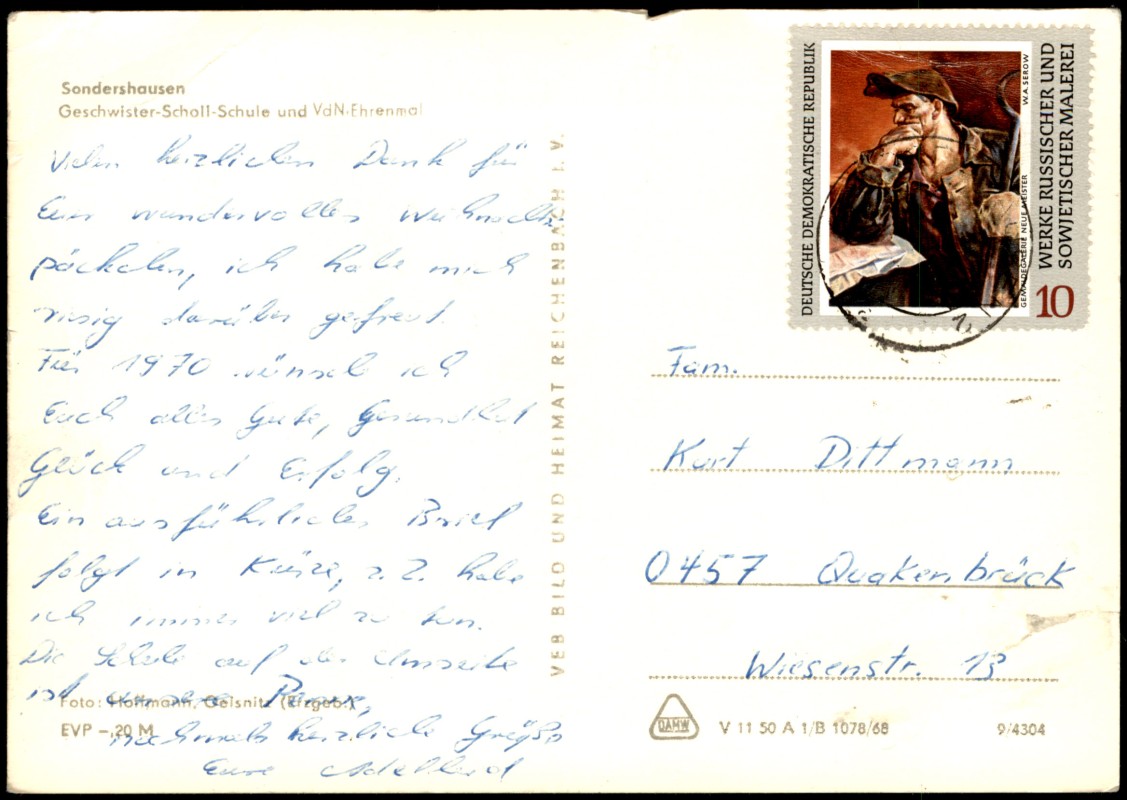 Sondershausen
Geschwister-Scholl-Schule und VdN-Ehrenmal
Vielen herzlichen Dank für
Euer wundervolles Weihnachts-
päckchen, ich habe mich
riesig darüber gefreut.
Für 1970 wünsch ich
Euch alles Gute, Gesundheit
Glück und Erfolg.
Ein ausführlicher Brief
folgt in Kürze, z. Z. habe
ich immer viel zu tun.
Die Schule auf der Umseite
ist unsere
nochmals herzliche Grüße
Eure
Foto: Hoffmann, Gelsnitz (Erzgeb.)
EVP -,20 M
VEB BILD UND HEIMAT REICHENBACH I. V.
DEUTSCHE DEMOKRATISCHE REPUBLIK
W. A. SEROW
GEMÄLDEGALERIE NEUE MEISTER
WERKE RUSSISCHER UND
SOWJETISCHER MALEREI
10
Fam.
Kurt Dittmann
0457 Quakenbrück
Wiesenstr. 13
DAMW
V 11 50 A 1/B 1078/68
9/4304